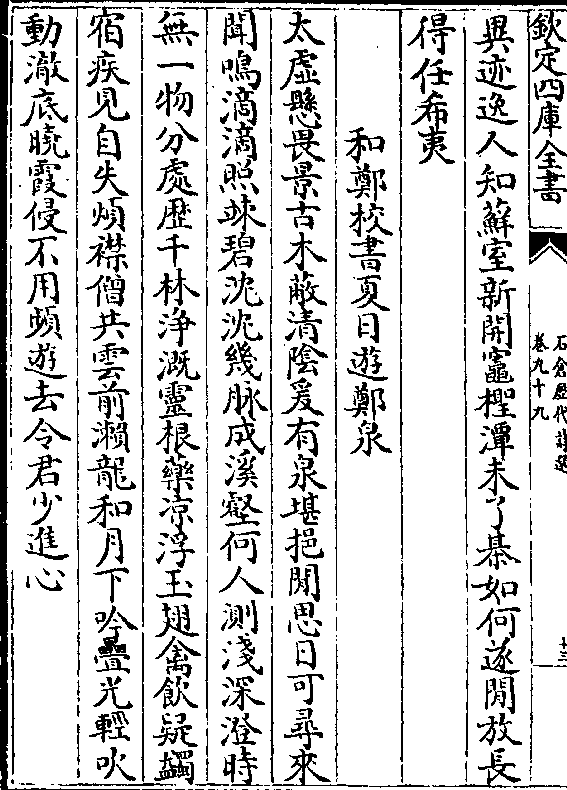 欽定四庫全書
石倉歷代詩選
卷九十九
十三
異迹逸人知蘇室新開竈檉潭未了棊如何遂閒放長
得任希夷
和鄭校書夏日遊鄭泉
太虛懸畏景古木蔽清陰爰有泉堪挹閒思日可尋來
聞鳴滴滴照竦碧沈沈幾脉成溪壑何人測淺深澄時
無一物分處歴千林浄溉靈根藥凉浮玉翅禽飲疑蠲
宿疾見自失煩襟僧共雲前瀬龍和月下吟疊光輕吹
動澈底曉霞侵不用頻遊去令君少進心